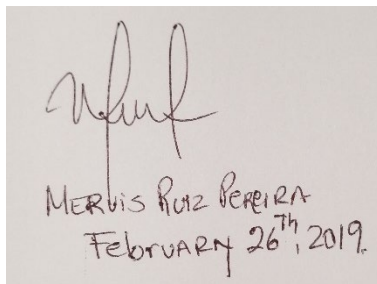 Mervis Ruiz Pereira
February 26Th, 2019.